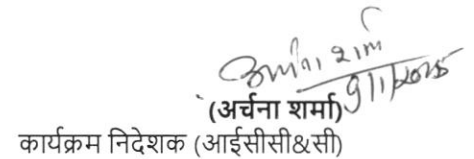 अर्चना शर्मा
9/1/2025
(अर्चना शर्मा)
कार्यक्रम निदेशक (आईसीसी&सी)